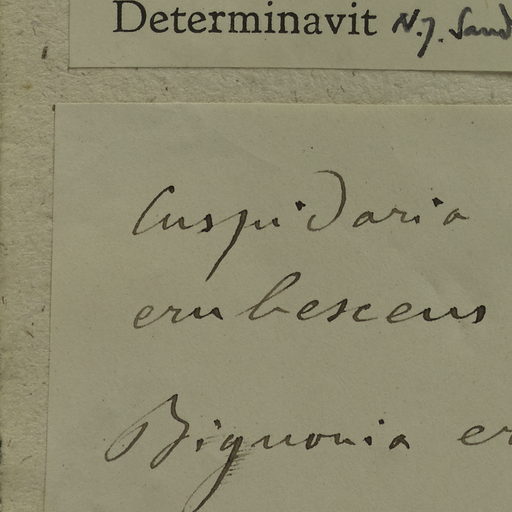 Determinavit N.J. Sand
Cuspidaria
erubescens
Bignonia er